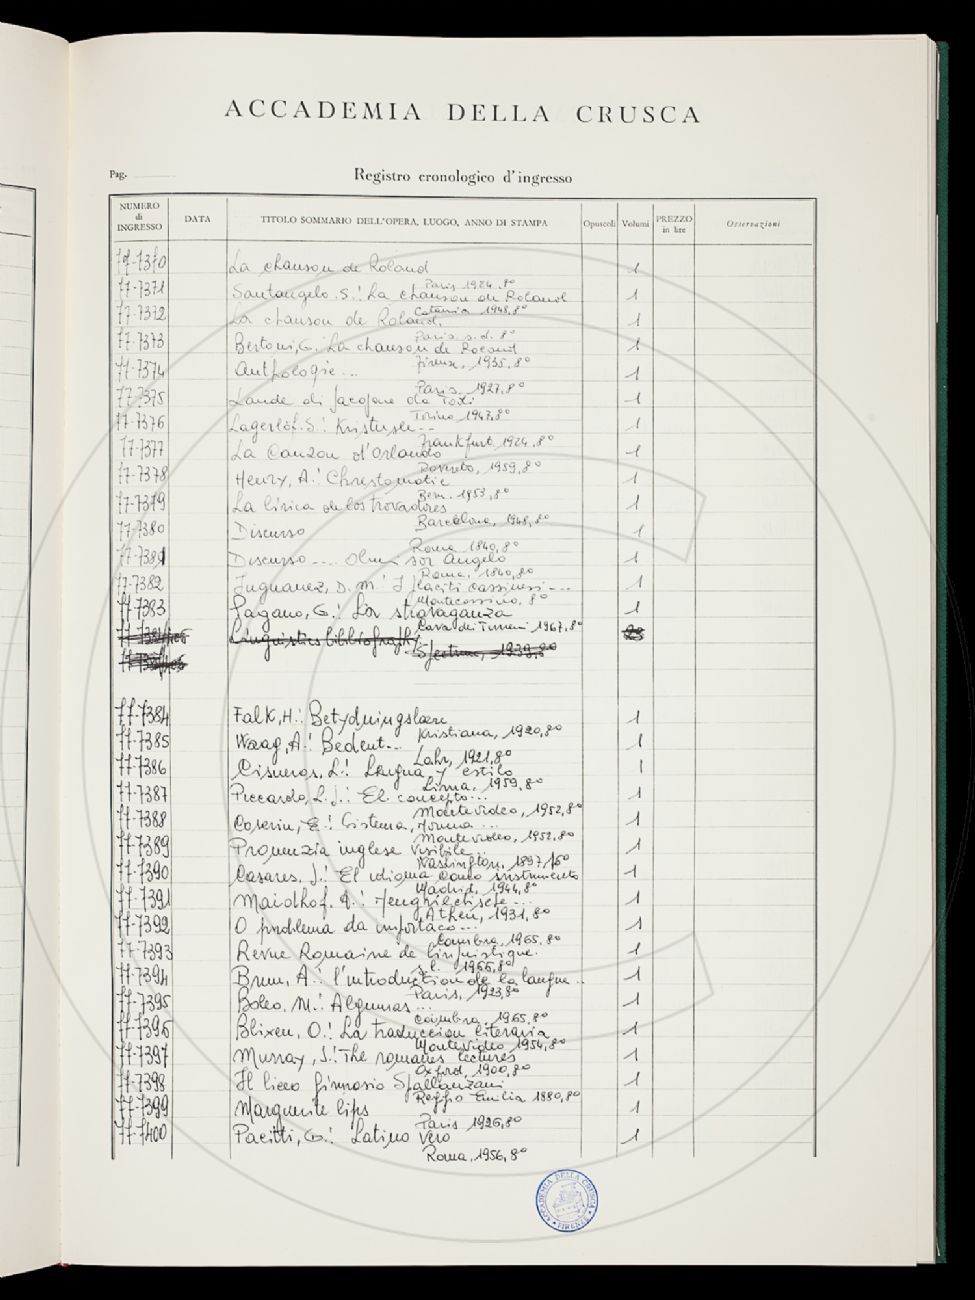 ACCADEMIA DELLA CRUSCA
Pag.
Registro cronologico d'ingresso
NUMERO di INGRESSO DATA TITOLO SOMMARIO DELL'OPERA, LUOGO, ANNO DI STAMPA Opuscoli Volumi PREZZO in lire Osservazioni
77-7370 La chanson de Roland 1
Paris 1924, 8°
77-7371 Santangelo. S.: La chanson de Roland 1
Catania 1948, 8°
77-7372 La chanson de Roland. 1
Paris. s.d. 8°
77-7373 Bertoni, G.: La chanson de Roland 1
Firenze, 1935, 8°
77-7374 Anthologie... 1
Paris. 1927, 8°
77-7375 Laude di Jacopone da Todi 1
Torino 1947, 8°
77-7376 Lagerlöf. S.: Kristusle... 1
Frankfurt. 1924, 8°
77-7377 La Canzon d'Orlando 1
Rovereto, 1959, 8°
77-7378 Henry, A.: Chrestomatie 1
Bern. 1953, 8°
77-7379 La lirica de los trovadores 1
Barcelona, 1948, 8°
77-7380 Discurso 1
Roma 1840, 8°
77-7381 Discurso .... Olmi sor Angelo 1
Roma, 1840, 8°
77-7382 Inguanez, D. M.: I placiti cassinesi --- 1
Montecassino, 8°
77-7383 Pagano, G.: La stravaganza 1
Cava dei Tirreni 1967, 8°
Linguistics bibliography
Spectrum, 1939, 8°
77-7384 Falk, H.: Betydningslære 1
Kristiana, 1920, 8°
77-7385 Waag, A.: Bedeut... 1
Lahr, 1921, 8°
77-7386 Cisneros, L.: Lengua y estilo 1
Lima, 1959, 8°
77-7387 Piccardo, L. J.: El concepto... 1
Montevideo, 1952, 8°
77-7388 Coseriu, E.: Sistema, norma ... 1
Montevideo, 1952, 8°
77-7389 Pronunzia inglese visibile 1
Washington, 1897, 16°
77-7390 Casares, J.: El idioma como instrumento 1
Madrid, 1944, 8°
77-7391 Maidhof. A.: ... 1
Athen, 1931, 8°
77-7392 O problema da importaco... 1
Coimbra, 1965, 8°
77-7393 Revue Romaine de linguistique. 1
s.l. 1966, 8°
77-7394 Brun, A.: l'introduction de la langue... 1
Paris, 1923, 8°
77-7395 Boleo, M.: Algumas ... 1
Coimbra, 1965, 8°
77-7396 Blixen, O.: La traduccion literaria 1
Montevideo 1954, 8°
77-7397 Murray, J.: The romanes lectures 1
Oxford, 1900, 8°
77-7398 Il liceo ginnasio Spallanzani 1
Reggio Emilia 1880, 8°
77-7399 Marguerite lips 1
Paris 1926, 8°
77-7400 Pacitti, G.: Latino vero 1
Roma, 1956, 8°
ACCADEMIA DELLA CRUSCA FIRENZE